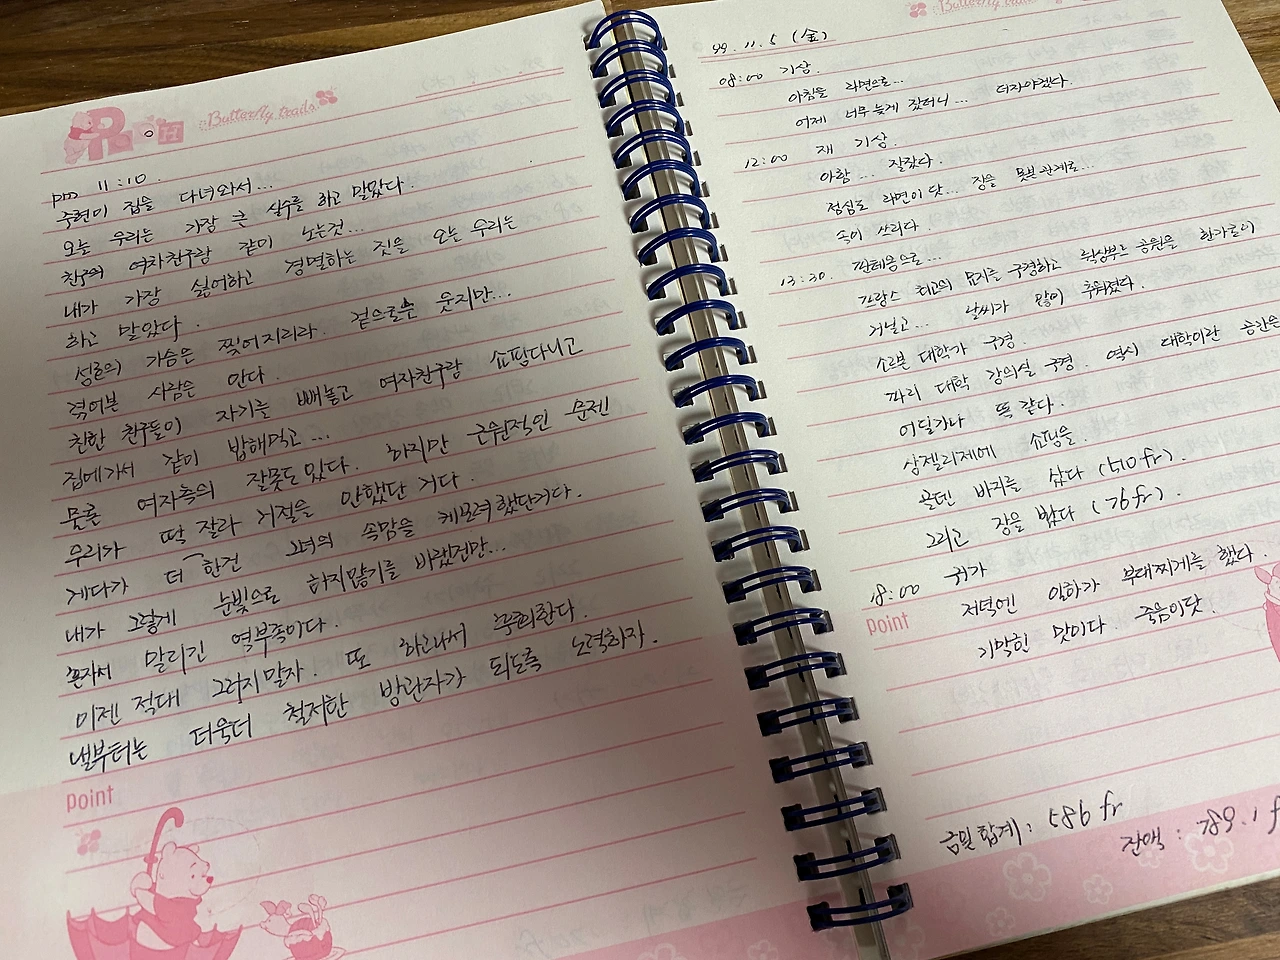 POOH
Butterfly trails
pm 11:10.
숙현이 집을 다녀와서...
오늘 우리는 가장 큰 실수를 하고 말았다.
친구의 여자친구랑 같이 노는건...
내가 가장 싫어하고 경멸하는 짓을 오늘 우리는
하고 말았다.
성호의 가슴은 찢어지리라. 겉으로는 웃지만...
겪어본 사람은 안다.
친한 친구들이 자기를 빼놓고 여자친구랑 쇼핑다니고
집에가서 같이 밥해먹고...
물론 여자측의 잘못도 있다. 하지만 근원적인 문젠
우리가 딱 잘라 거절을 안했단 거다.
게다가 더 한건 그녀의 속맘을 케보려 했단거다.
내가 그렇게 눈빛으로 하지않기를 바랬건만...
혼자서 말리긴 역부족이다.
이젠 적대 그러지말자. 또 하나나서 후회한다.
낼부터는 더욱더 철저한 방관자가 되도록 노력하자.
point
Butterfly trails
99. 11. 5 (金)
08:00 기상.
아침을 라면으로...
어제 너무 늦게 잤더니... 더자야겠다.
12:00 재 기상.
아함... 잘잤다.
점심도 라면이닷... 장을 못본관계로...
속이 쓰리다.
13:30. 팡테옹으로...
프랑스 최고의 묘지를 구경하고 뤽상부르 공원을 한가로이
거닐고... 날씨가 많이 추워졌다.
소르본 대학가 구경.
파리 대학 강의실 구경. 역시 대학이란 공간은
어딜가나 똑 같다.
샹젤리제에 쇼핑을.
골덴 바지를 샀다 (510fr).
그리고 장을 봤다 (76fr).
18:00 귀가
point
저녁엔 인하가 부대찌게를 했다.
기막힌 맛이다. 죽음이닷.
금일합계: 586 fr
잔액: 789.1 f